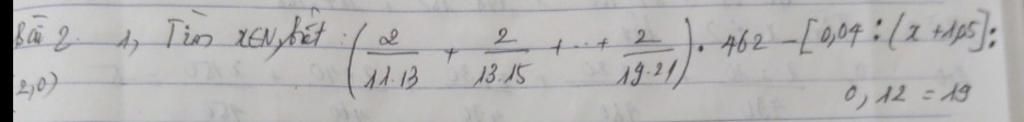 Bài 2. 1, Tìm x∈N, biết: (2/11.13 + 2/13.15 + ... + 2/19.21). 462 - [0,04 : (x + 1,05] :
(2,0) 0,12 = 19